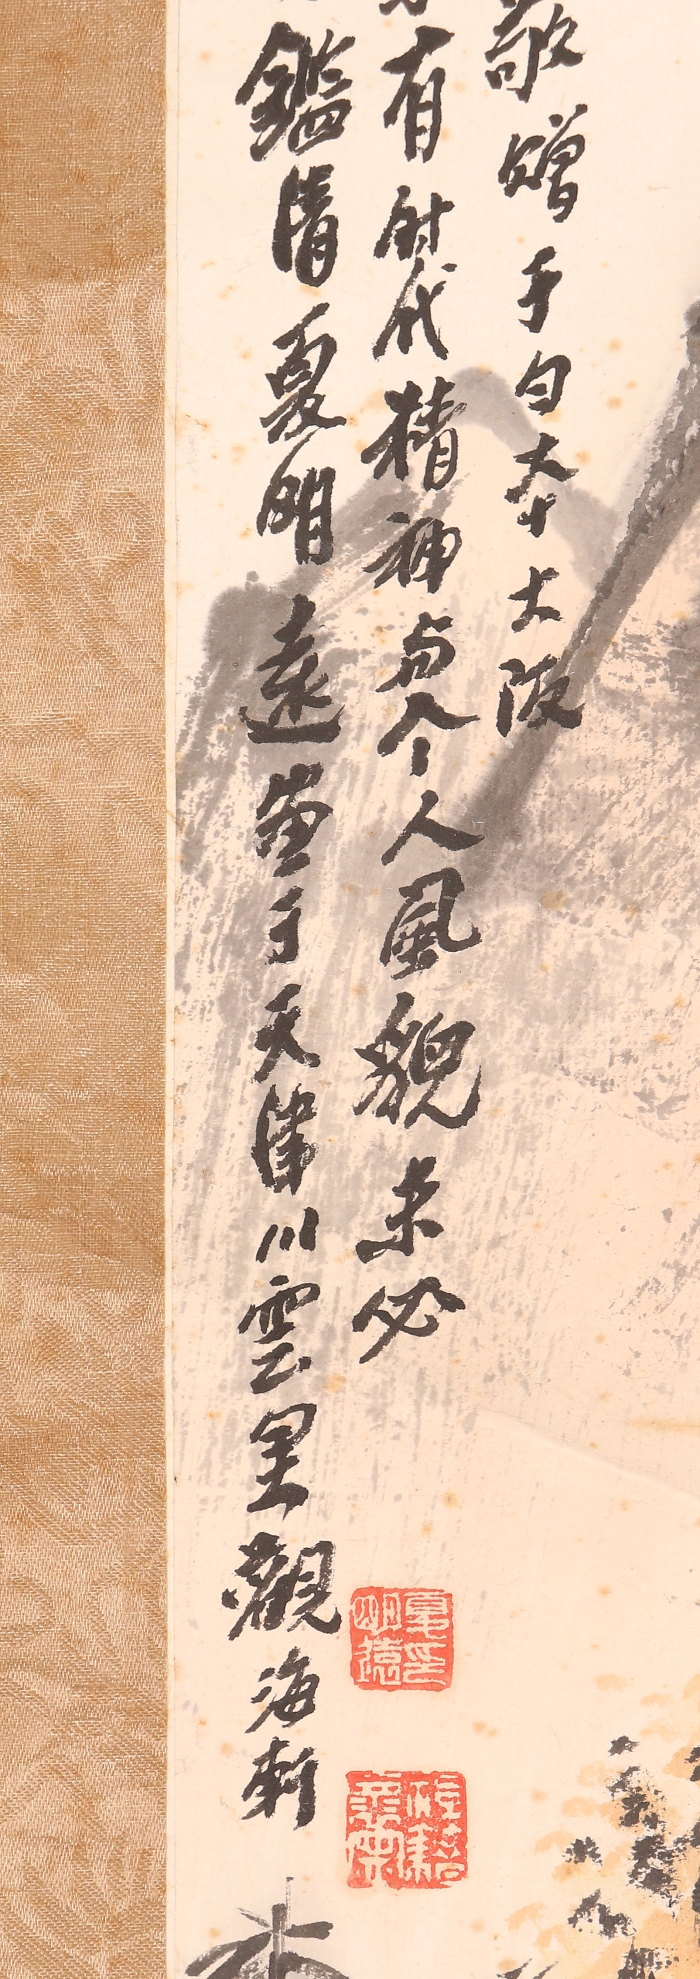 敬贈于日本大阪
有时代精神与个人風貌未必
鑑清夏明遠畫于天津川雲里觀海軒
夏印明遠